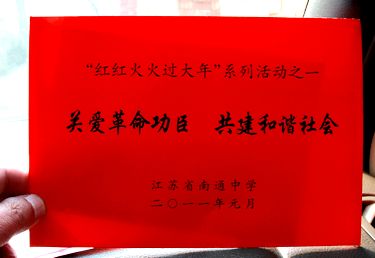 “红红火火过大年”系列活动之一
关爱革命功臣 共建和谐社会
江苏省南通中学
二〇一一年元月